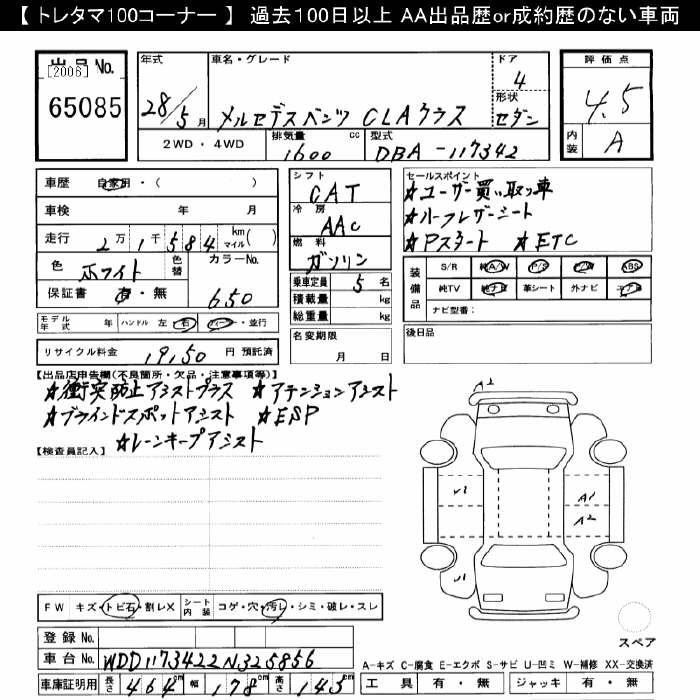 【 トレタマ100コーナー 】 過去100日以上 AA出品歴or成約歴のない車両
出品No.
[2006]
65085
年式
28/5月
車名・グレード
メルセデスベンツ CLAクラス
ドア
4
形状
セダン
評価点
4.5
内装
A
2WD・4WD
排気量 cc
1600
型式
DBA-117342
車歴 自家用・( )
車検 年 月
走行 2万1千584 km マイル( )
色 ホワイト 色替
カラーNo.
650
保証書 有・無
シフト
CAT
冷房
AAC
燃料
ガソリン
乗車定員 5名
積載量 kg
総重量 kg
名変期限
月 日
セールスポイント
★ユーザー買い取り車
★ハーフレザーシート
★Pスタート ★ETC
装備品
S/R 純A/W P/S P/W ABS
純TV 純ナビ 革シート 外ナビ エアB
ナビ型番:
後日品
モデル年式 年 ハンドル 左 右 ディーラー・並行
リサイクル料金 19,150 円 預託済
【出品店申告欄(不良箇所・欠品・注意事項等)】
★衝突防止アシストプラス ★アテンションアシスト
★ブラインドスポットアシスト ★ESP
★レーンキープアシスト
【検査員記入】
A2
A1
A2
スペア
FW キズ・トビ石・割レX
シート内装 コゲ・穴・汚レ・シミ・破レ・スレ
登録No.
車台No. WDD1173422N325856
車庫証明用 長さ 464cm 幅 178cm 高さ 143cm
A-キズ C-腐食 E-エクボ S-サビ U-凹ミ W-補修 XX-交換済
工具 有・無 ジャッキ 有・無